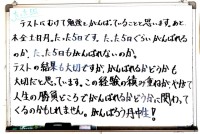 テストにむけて勉強をがんばっていることと思います。あと
木金土日月。たった5日です。たった5日ぐらいがんばれる
のか、たった5日もがんばれないのか。
テストの結果も大切ですが、がんばれるかどうかも
大切だと思っています。この経験の積み重ねが、やがて
人生の勝負どころでがんばれるかどうか、に関わって
くるのかもしれません。がんばろう月中生!